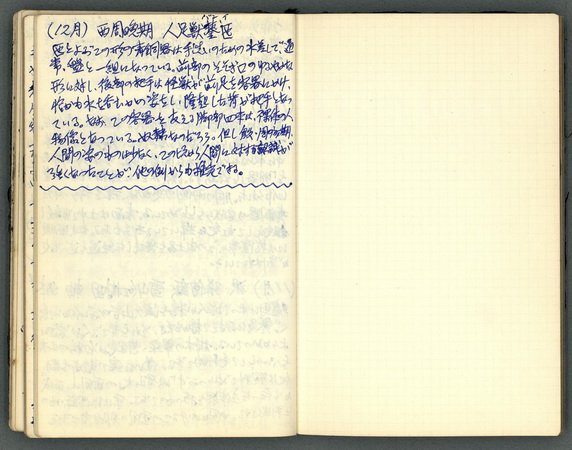 (12月) 西周晩期 人足獣鋬匜
匜とよぶこの形の青銅器は手洗いのための水差しで通
常、盤と一組になっている。前部のそそぎ口のゆるやかな
形に対し、後部の把手は怪獣が前足を容器にかけ、
恰かも水を呑むかの姿をし、隆起した背が把手となっ
ている。なお、この容器を支える脚部四本は、裸体の人
物像となっている。奴隷なのだろう。但し殷・周の初期、
人間の姿のものは少なく、この頃から人間に対する認識が
強くなったことが、他の例からも推定できる。